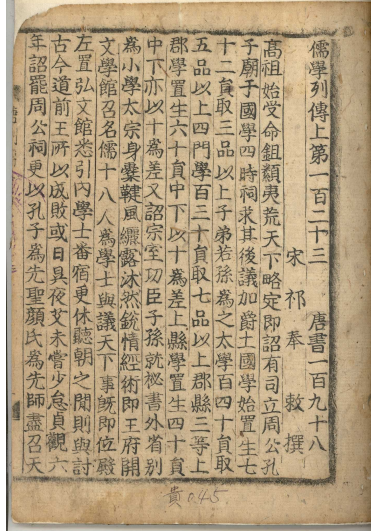 儒學列傳上第一百二十三　唐書一百九十八
宋祁奉　敕撰
高祖始受命鉏纇夷荒天下略定即詔有司立周公孔
子廟于國學四時祠求其後議加爵土國學始置生七
十二員取三品以上子弟若孫爲之太學百四十員取
五品以上四門學百三十員取七品以上郡縣三等上
郡學置生六十員中下以十爲差上縣學置生四十員
中下亦以十爲差又詔宗室功臣子孫就祕書外省别
爲小學太宗身櫜鞬風纚露沐然銳情經術即王府開
文學館召名儒十八人爲學士與議天下事旣即位殿
左置弘文館悉引內學士番宿更休聽朝之閒則與討
古今道前王所以成敗或日昃夜艾未嘗少怠貞觀六
年詔罷周公祠更以孔子爲先聖顔氏爲先師盡召天
貴045